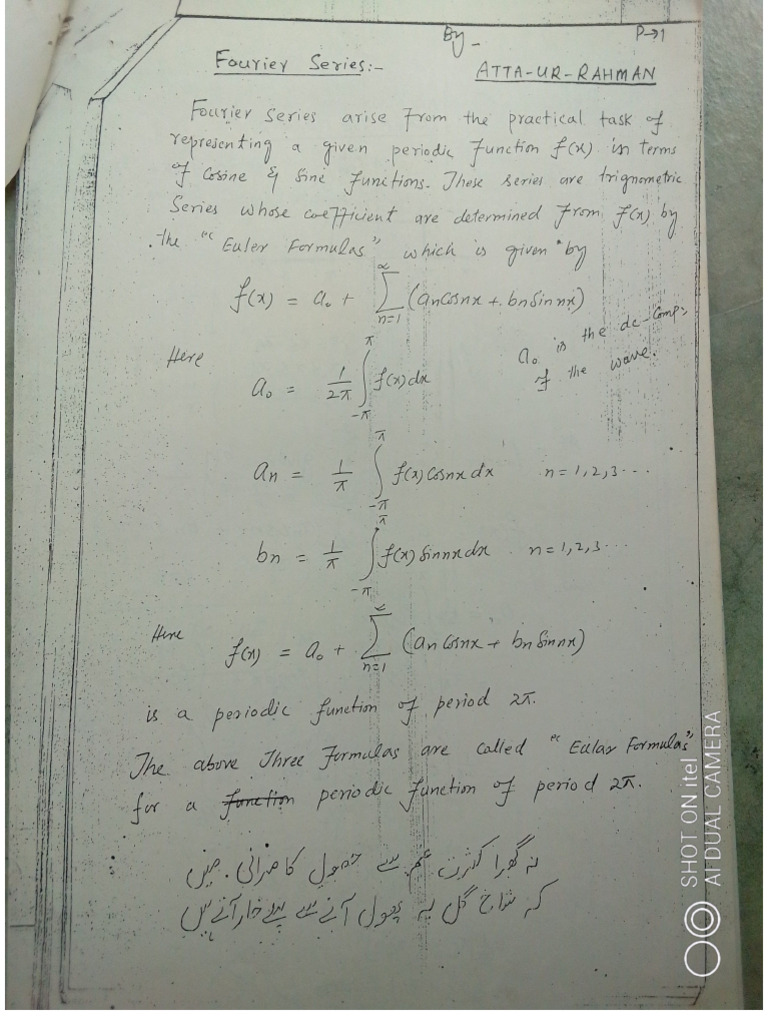 By -
P→1
Fourier Series:-
ATTA-UR-RAHMAN
Fourier Series arise from the practical task of
representing a given periodic function f(x) in terms
of Cosine & Sine functions. These series are trignometric
Series whose coefficient are determined from f(x) by
the "Euler Formulas" which is given by
f(x) = a₀ + ∑_{n=1}^{∞} (an Cosnx + bn Sin nx)
Here
a₀ is the dc-comp:
of the wave.
a₀ = 1/2π ∫_{-π}^{π} f(x) dx
an = 1/π ∫_{-π}^{π} f(x) Cosnx dx n = 1, 2, 3 ...
bn = 1/π ∫_{-π}^{π} f(x) Sinnx dx n = 1, 2, 3 ...
Here
f(x) = a₀ + ∑_{n=1}^{∞} (an Cosnx + bn Sinnx)
is a periodic function of period 2π.
The above Three Formulas are called "Eular Formulas"
for a function periodic function of period 2π.
نہ گھبرا کثرت غم سے حصول کامرانی میں
کہ شاخ گل پہ پھول آنے سے پہلے خار آتے ہیں
SHOT ON itel
AI DUAL CAMERA